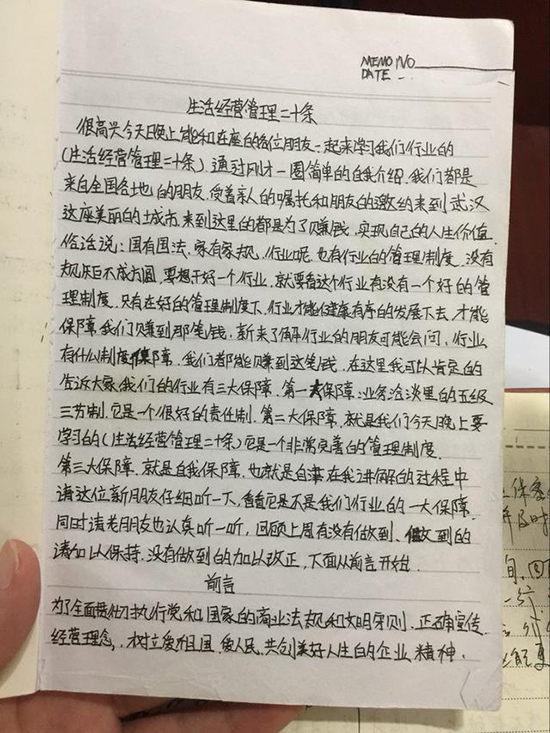 MEMO NO
DATE
生活经营管理二十条
很高兴今天晚上能和在座的各位朋友一起来学习我们行业的
(生活经营管理二十条).通过刚才一圈简单的自我介绍.我们都是
来自全国各地的朋友.受着亲人的嘱托和朋友的邀约来到武汉
这座美丽的城市.来到这里的都是为了赚钱.实现自己的人生价值.
俗话说:国有国法.家有家规.行业呢.也有行业的管理制度.没有
规矩不成方圆.要想干好一个行业.就要看这个行业有没有一个好的管
理制度.只有在好的管理制度下.行业才能健康有序的发展下去.才能
保障我们赚到那笔钱.新来了解行业的朋友可能会问.行业
有什么制度保障.我们都能赚到这笔钱.在这里我可以肯定的
告诉大家.我们的行业有三大保障.第一大保障:业务洽谈里的五级
三方制.它是一个很好的责任制.第二大保障.就是我们今天晚上要
学习的(生活经营管理二十条)它是一个非常完善的管理制度.
第三大保障.就是自我保障.也就是自律在我讲解的过程中
请这位新朋友仔细听一下.看看它是不是我们行业的一大保障.
同时请老朋友也认真听一听.回顾上周有没有做到.做到的
请加以保持.没有做到的加以改正.下面从前言开始.
前言
为了全面贯彻执行党和国家的商业法规和文明守则.正确宣传
经营理念.树立爱祖国.爱人民.共创美好人生的企业精神.